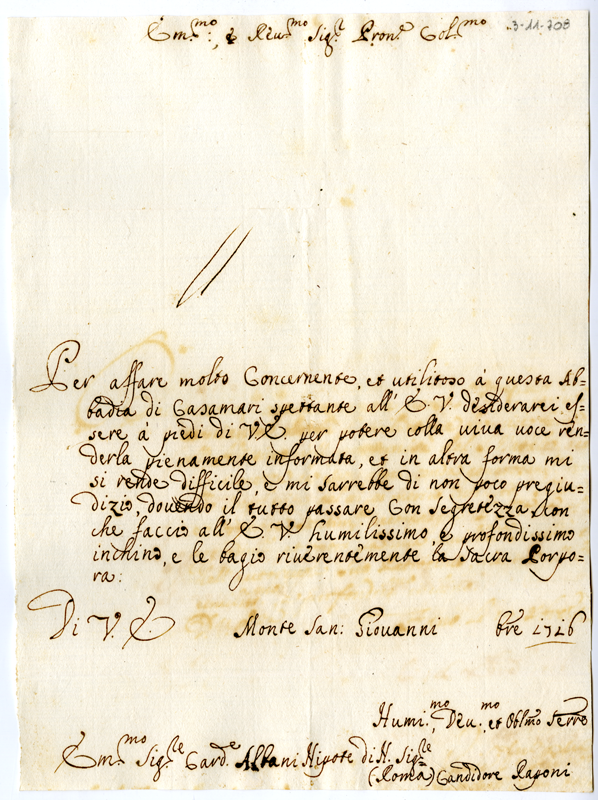 Em.mo, e Reu.mo Sig.r Pron.e Col.mo
3-11-708
Per affare molto Concernente, et utilitoso à questa Ab=
badia di Casamari spettante all' E. V. desiderarei es=
sere à piedi di V. E. per potere colla viva voce ren=
derla pienamente informata, et in altra forma mi
si rende difficile, e mi sarrebbe di non poco pregiu=
dizio, dovendo il tutto passare Con Segretezza, Con
che faccio all' E. V. humilissimo, e profondissimo
inchino, e le bagio riuerentemente la Sacra Porpo=
ra:
Di V. E. Monte San: Giouanni bre 1716
Humi.mo, Deu.mo, et Obl.mo Serre
Em.mo Sig.re Card.e Albani Nipote di N. Sig.re
(Roma) Candidore Ragoni